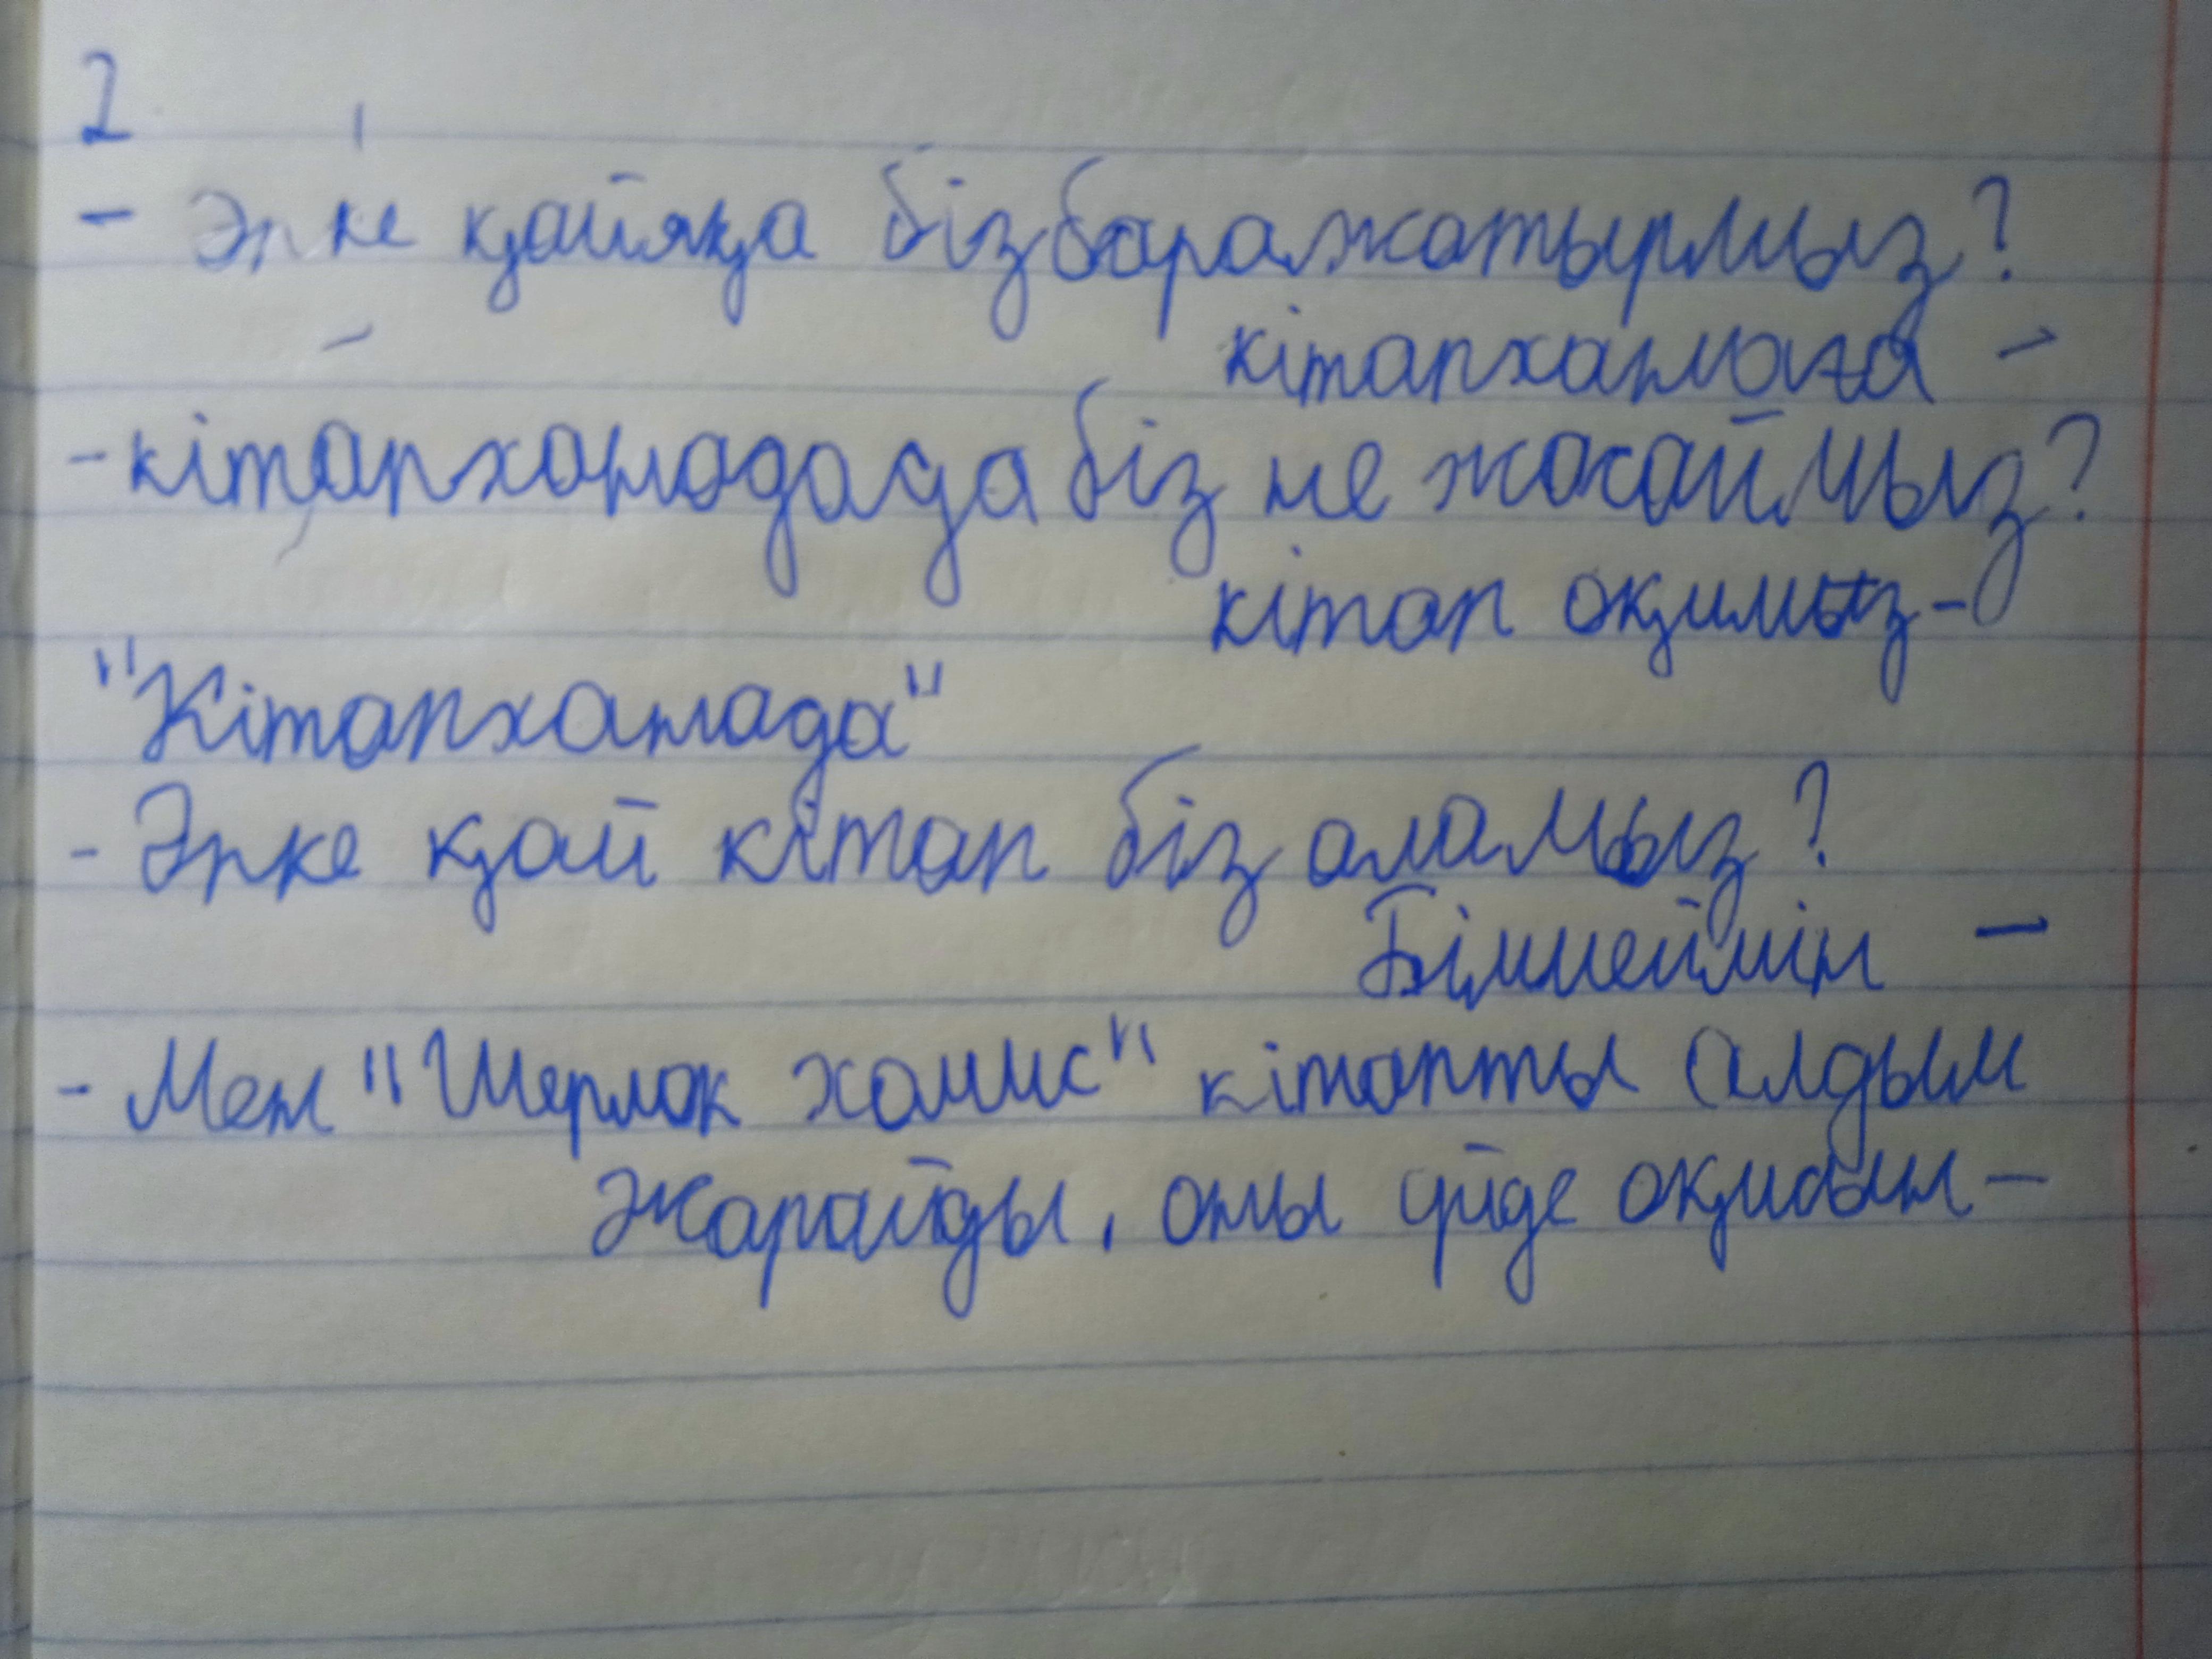 2
- Әпке қайяқа біз баражатырмыз?
кітапханаға -
- кітапханадада біз не жасаймыз?
кітап оқимыз -
"Кітапханада"
- Әпке қай кітап біз аламыз?
Білмеймін -
- Мен "Шерлок холмс" кітапты алдым
Жарайды, оны үйде оқисың -